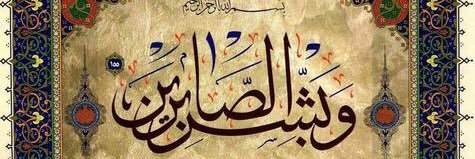 بسم الله الرحمن الرحيم
وَبَشِّرِ الصَّابِرِينَ
١٥٥